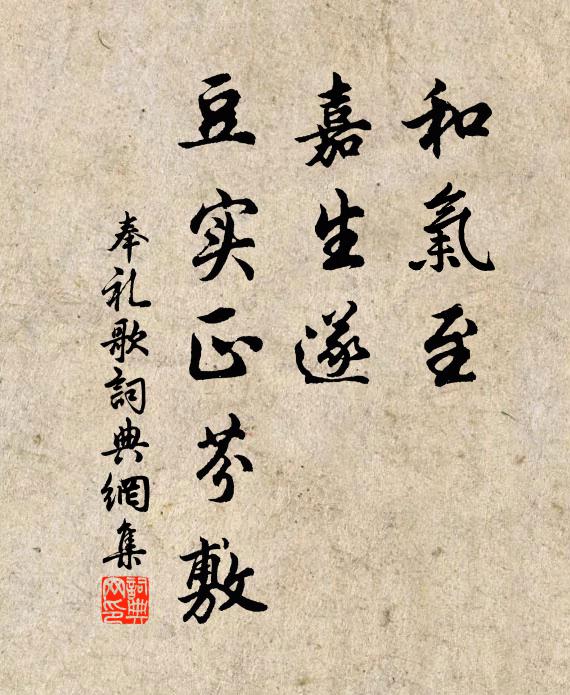 和氣至
嘉生遂
豆实正芬敷
奉礼歌詞典網集
詞典网印